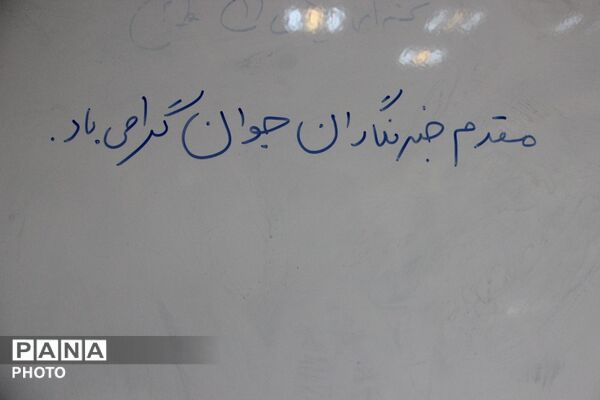 مقدم خبرنگاران جوان گرامی باد.
PANA
PHOTO